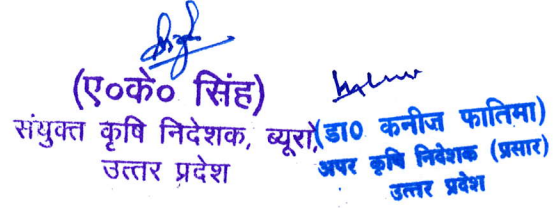 (ए०के० सिंह)
संयुक्त कृषि निदेशक, ब्यूरो,
उत्तर प्रदेश
(डा० कनीज फातिमा)
अपर कृषि निदेशक (प्रसार)
उत्तर प्रदेश